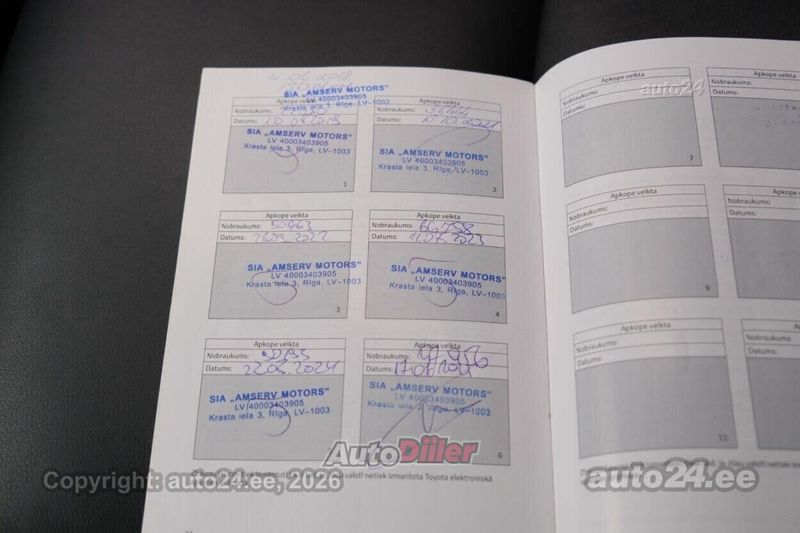 SIA „AMSERV MOTORS"
LV 40003403905
Krasta iela 3, Rīga, LV-1003
Apkope veikta
Nobraukums:
Datums: 20.09.2019
SIA „AMSERV MOTORS"
LV 40003403905
Krasta iela 3, Rīga, LV-1003
1
Nobraukums:
Datums:
SIA „AMSERV MOTORS"
LV 40003403905
Krasta iela 3, Rīga, LV-1003
2
Apkope veikta
Nobraukums: 50463
Datums:
SIA „AMSERV MOTORS"
LV 40003403905
Krasta iela 3, Rīga, LV-1003
3
Apkope veikta
Nobraukums: 66758
Datums: 11.07.2023
SIA „AMSERV MOTORS"
LV 40003403905
Krasta iela 3, Rīga, LV-1003
4
Apkope veikta
Nobraukums:
Datums: 22.08.2024
SIA „AMSERV MOTORS"
LV 40003403905
Krasta iela 3, Rīga, LV-1003
Apkope veikta
Nobraukums:
Datums:
SIA „AMSERV MOTORS"
LV 40003403905
Krasta iela 3, Rīga, LV-1003
6
netiek izmantota Toyota elektroniskā
Apkope veikta
Nobraukums:
Datums:
7
Apkope veikta
Nobraukums:
Datums:
Apkope veikta
Nobraukums:
Datums:
9
Apkope veikta
Nobraukums:
Datums:
Apkope veikta
Nobraukums:
Datums:
11
Nobraukums:
Datums:
auto24
AutoDiiler
Copyright: auto24.ee, 2026
auto24.ee